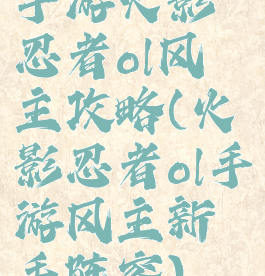 手游火影
忍者ol风
主攻略(火
影忍者ol手
游风主新
手阵容)